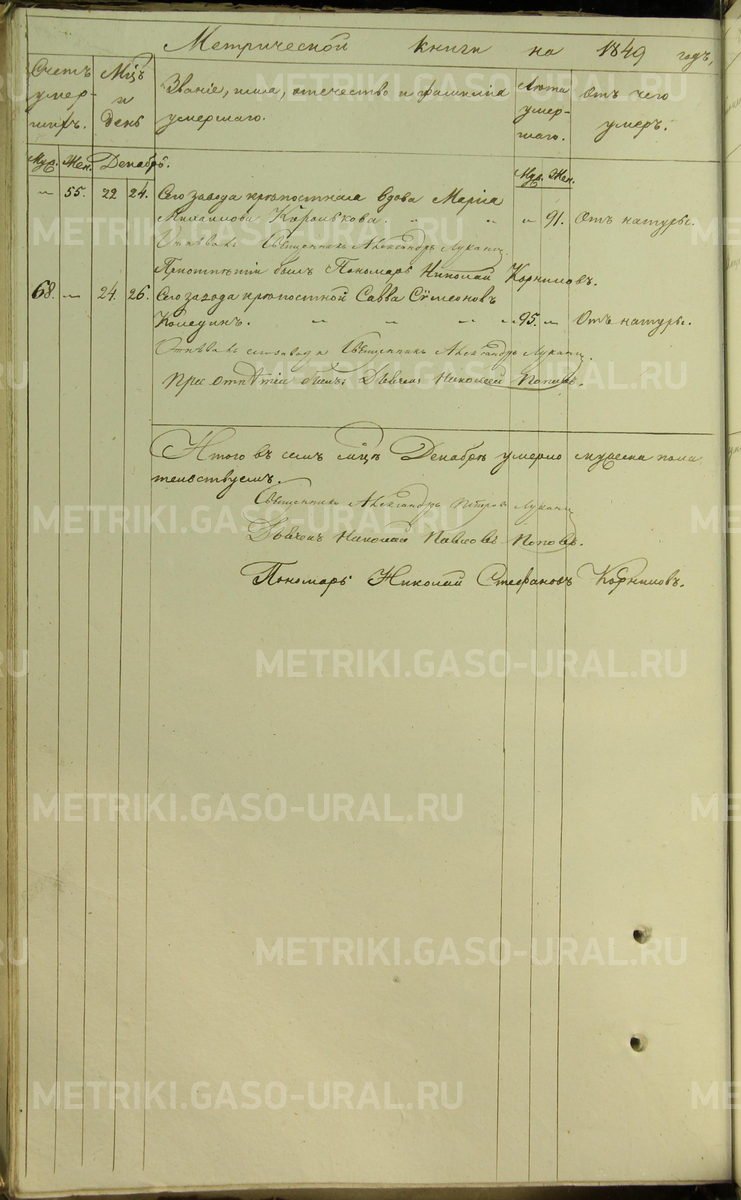 Метрической книги на 1849 годъ,
Счетъ умер-шихъ.
Мцъ и день
Званіе, имя, отечество и фамилія умершаго.
Лѣта умер-шаго.
Отъ чего умеръ.
Муж. Жен. Декабрь. Муж. Жен.
— 55. 22 24. Сего завода крѣпостная вдова Марія
— 91. Отъ натуры.
Священникъ Александръ Луканинъ
былъ Пономарь Николай Корниловъ.
68. — 24. 26. Сего завода крѣпостной Савва Сѵмеоновъ
Колединъ. 95. — Отъ натуры.
Священникъ Александръ Луканинъ.
При отпѣтіи былъ Дьячекъ Николай Поповъ.
Итого въ семъ мцѣ Декабрѣ умерло мужеска пола
Священникъ Александръ Петровъ Луканинъ
Дьячекъ Николай Павловъ Поповъ.
Пономарь Николай Стефановъ Корниловъ.
METRIKI.GASO-URAL.RU